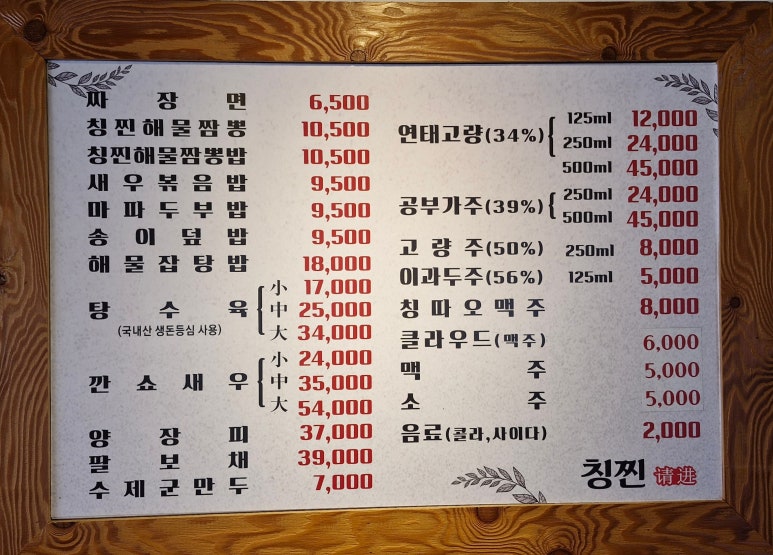 짜장면 6,500
칭찐해물짬뽕 10,500
칭찐해물짬뽕밥 10,500
새우볶음밥 9,500
마파두부밥 9,500
송이덮밥 9,500
해물잡탕밥 18,000
탕수육 小 17,000
中 25,000
大 34,000
(국내산 생돈등심 사용)
깐쇼새우 小 24,000
中 35,000
大 54,000
양장피 37,000
팔보채 39,000
수제군만두 7,000
연태고량(34%) 125ml 12,000
250ml 24,000
500ml 45,000
공부가주(39%) 250ml 24,000
500ml 45,000
고량주(50%) 250ml 8,000
이과두주(56%) 125ml 5,000
칭따오맥주 8,000
클라우드(맥주) 6,000
맥주 5,000
소주 5,000
음료(콜라,사이다) 2,000
칭찐 请进